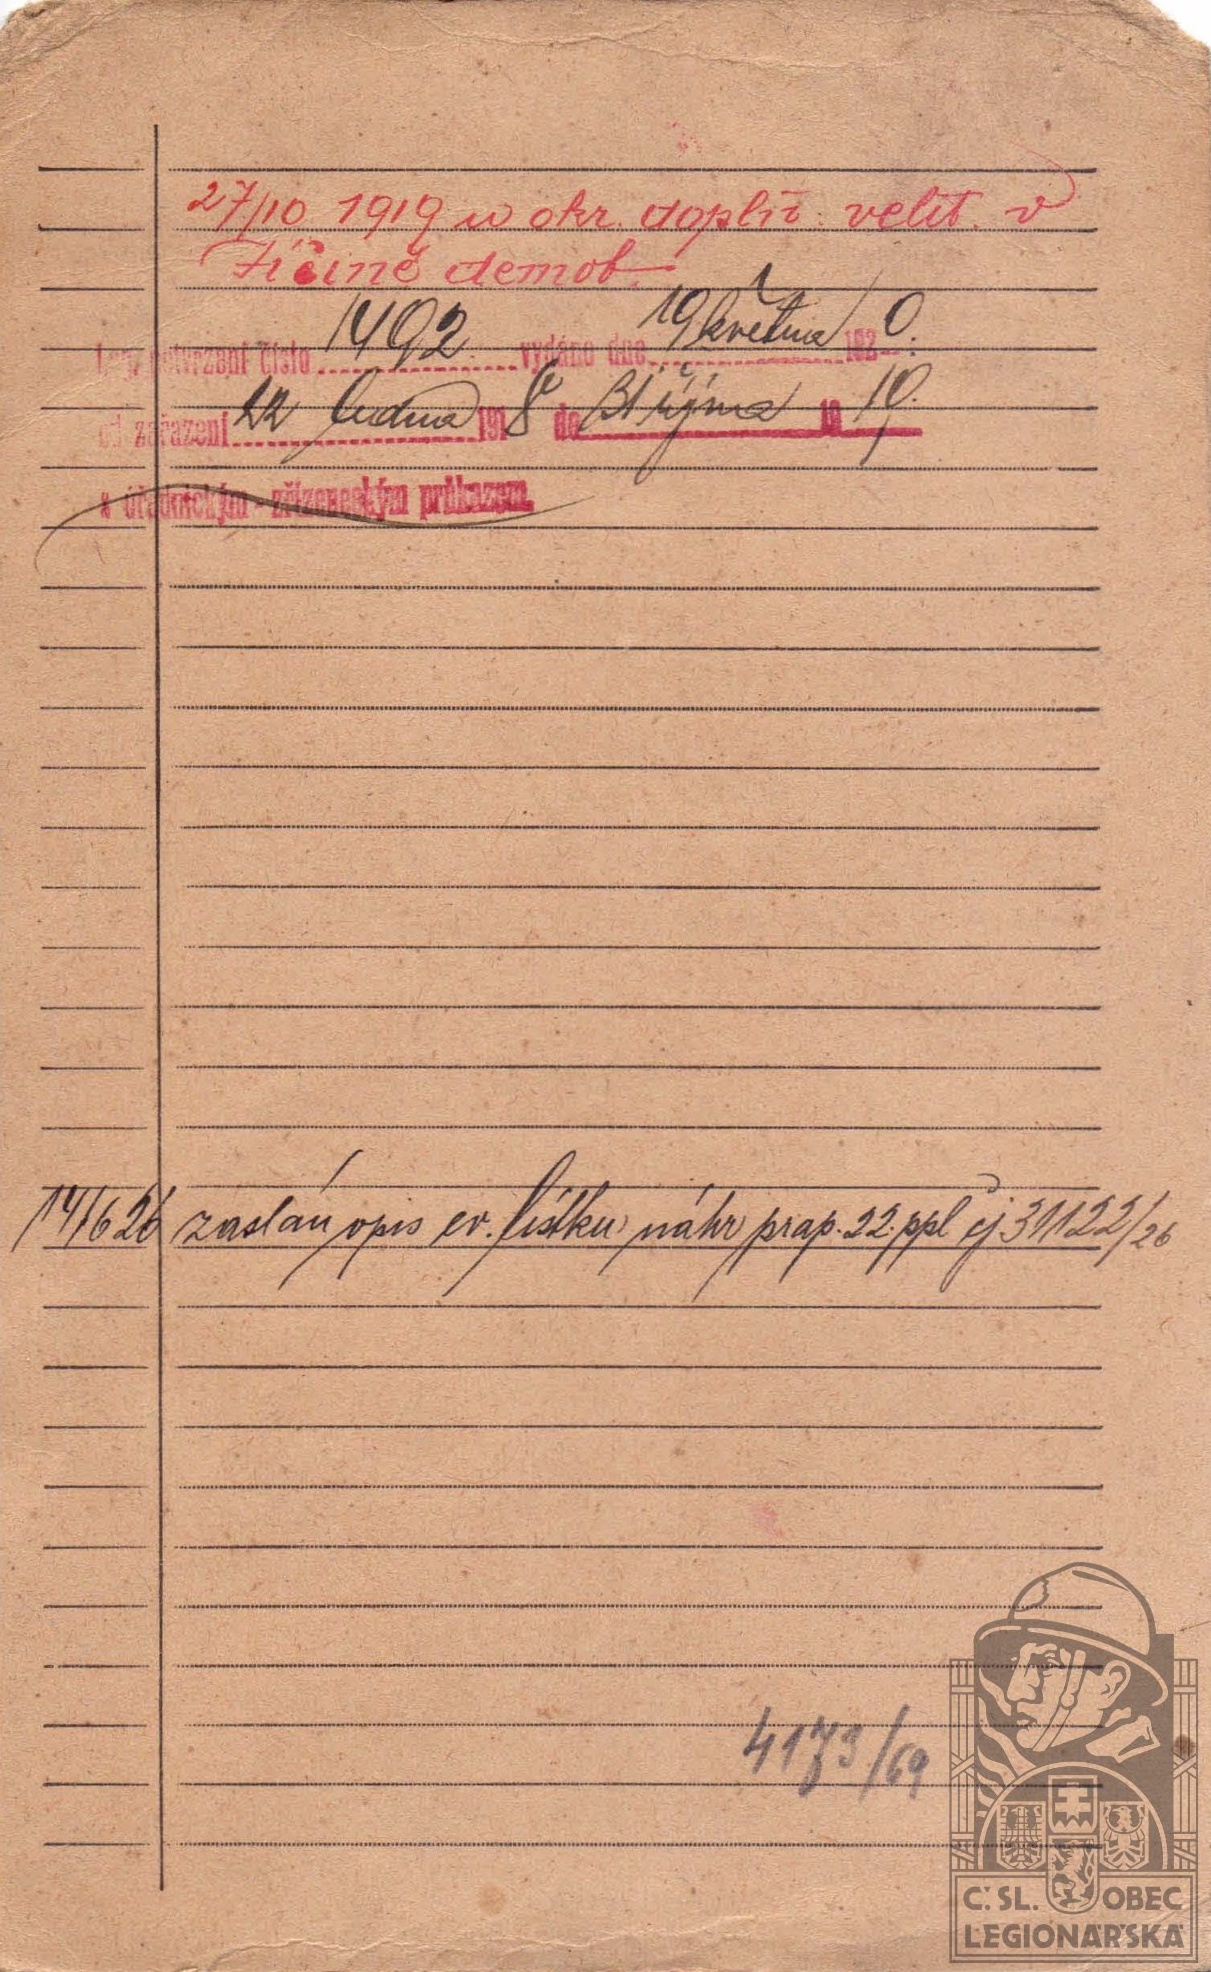 27/10 1919 u okr. doplň. velit. v
Jičíně demob.
Leg. potvrzení číslo 1492. vydáno dne 19 května 1920.
od zařazení 22 ledna 1918 do 31 října 1919.
s úřednickým - zřízeneckým průkazem.
14/6 26 zaslán opis ev. lístku náhr prap. 22. ppl čj 31122/26
4173/69
Č. SL. OBEC
LEGIONÁŘSKÁ